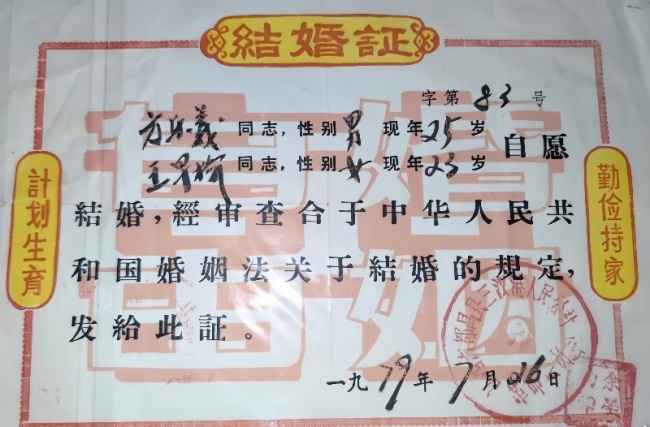 結婚証
字第83号
同志,性别男 现年25岁
同志,性别女 现年23岁
自愿
結婚,經审查合于中华人民共
和国婚姻法关于結婚的規定,
发給此証。
一九79年7月26日
計划生育
勤俭持家